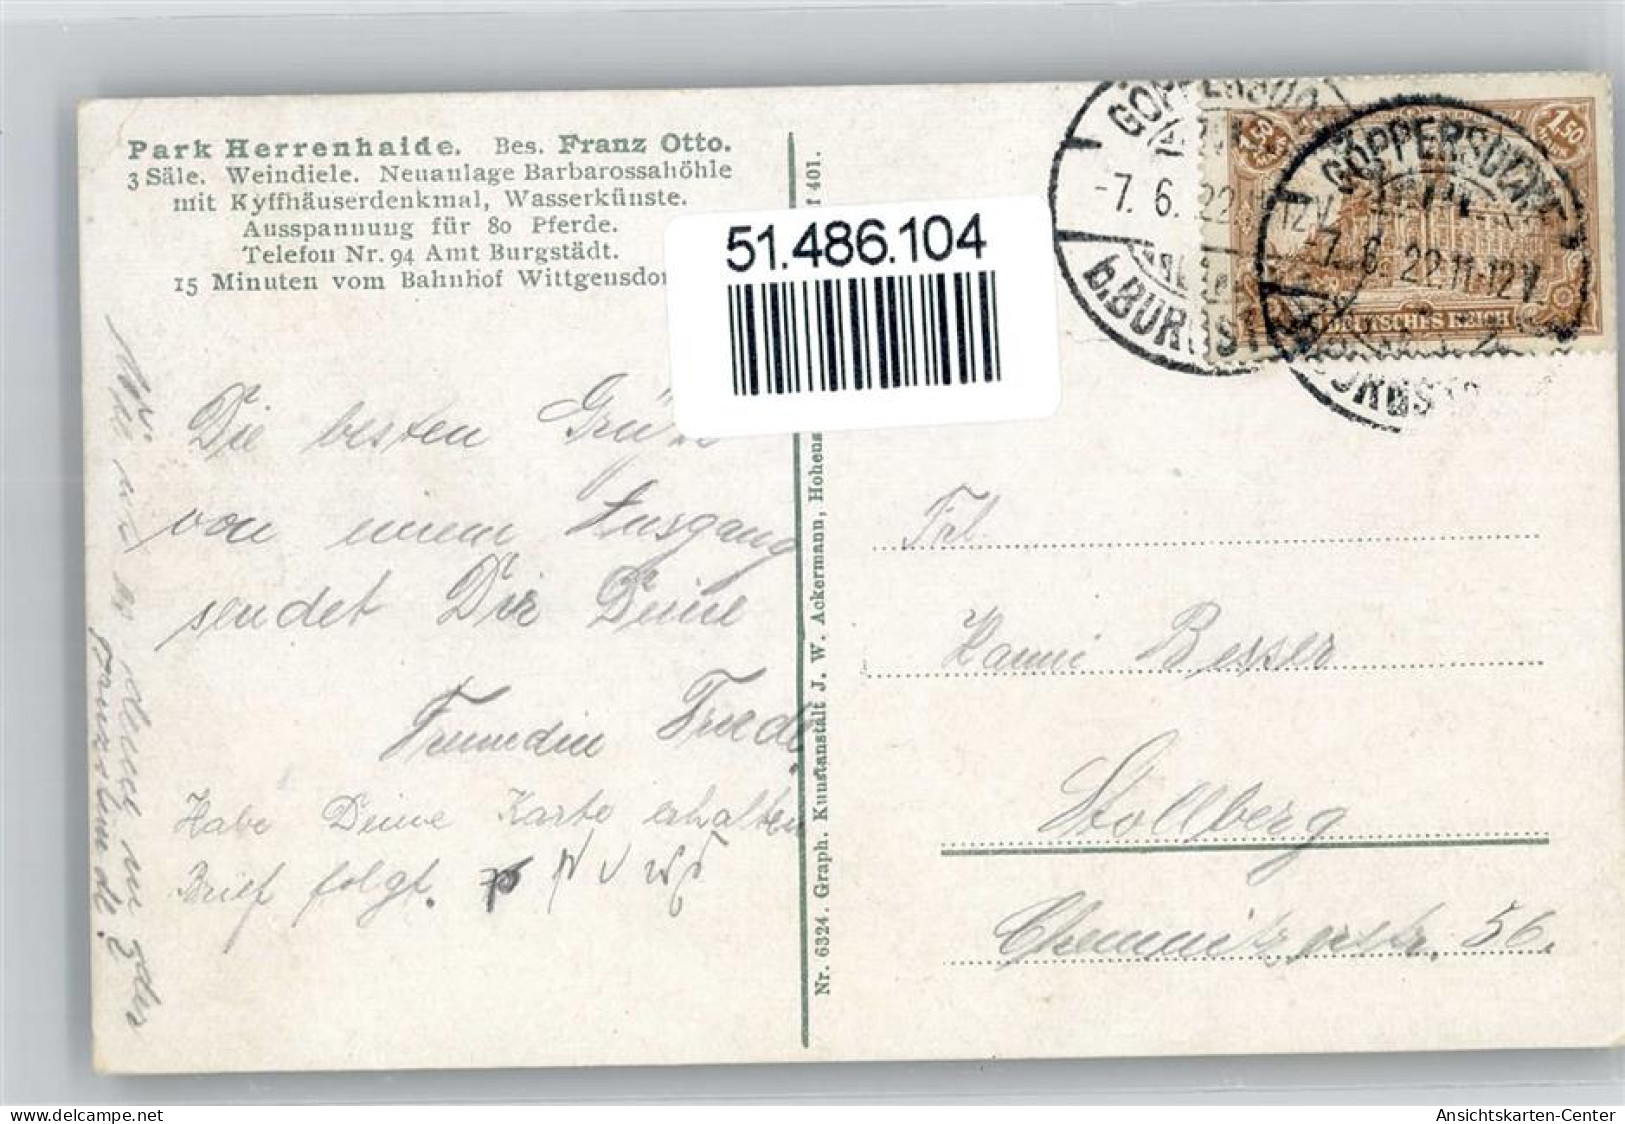 Park Herrenhaide. Bes. Franz Otto.
3 Säle. Weindiele. Neuanlage Barbarossahöhle
mit Kyffhäuserdenkmal, Wasserkünste.
Ausspannung für 80 Pferde.
Telefon Nr. 94 Amt Burgstädt.
15 Minuten vom Bahnhof Wittgensdor
51.486.104
GÖPPERSDO
-7. 6. 22 12V
b. BURGST
GÖPPERSDORF
-7. 6. 22.11-12V
BURGST
1.50
1.50
DEUTSCHES REICH
Die besten Grüße
von einem Ausgang
sendet Dir Deine
Freundin Friedl.
Habe Deine Karte erhalten
Brief folgt.
Nr. 6324. Graph. Kunstanstalt J. W. Ackermann, Hohens
401.
Frl.
Hanni Besser
Stollberg
Chemnitzerstr. 56.